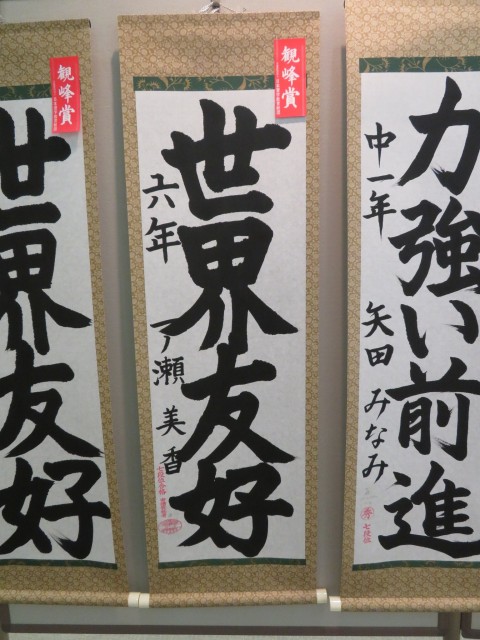 力強い前進
中一年
矢田 みなみ
七段位
観峰賞
世界友好
六年
瀬 美香
七段位合格
観峰賞
世界友好